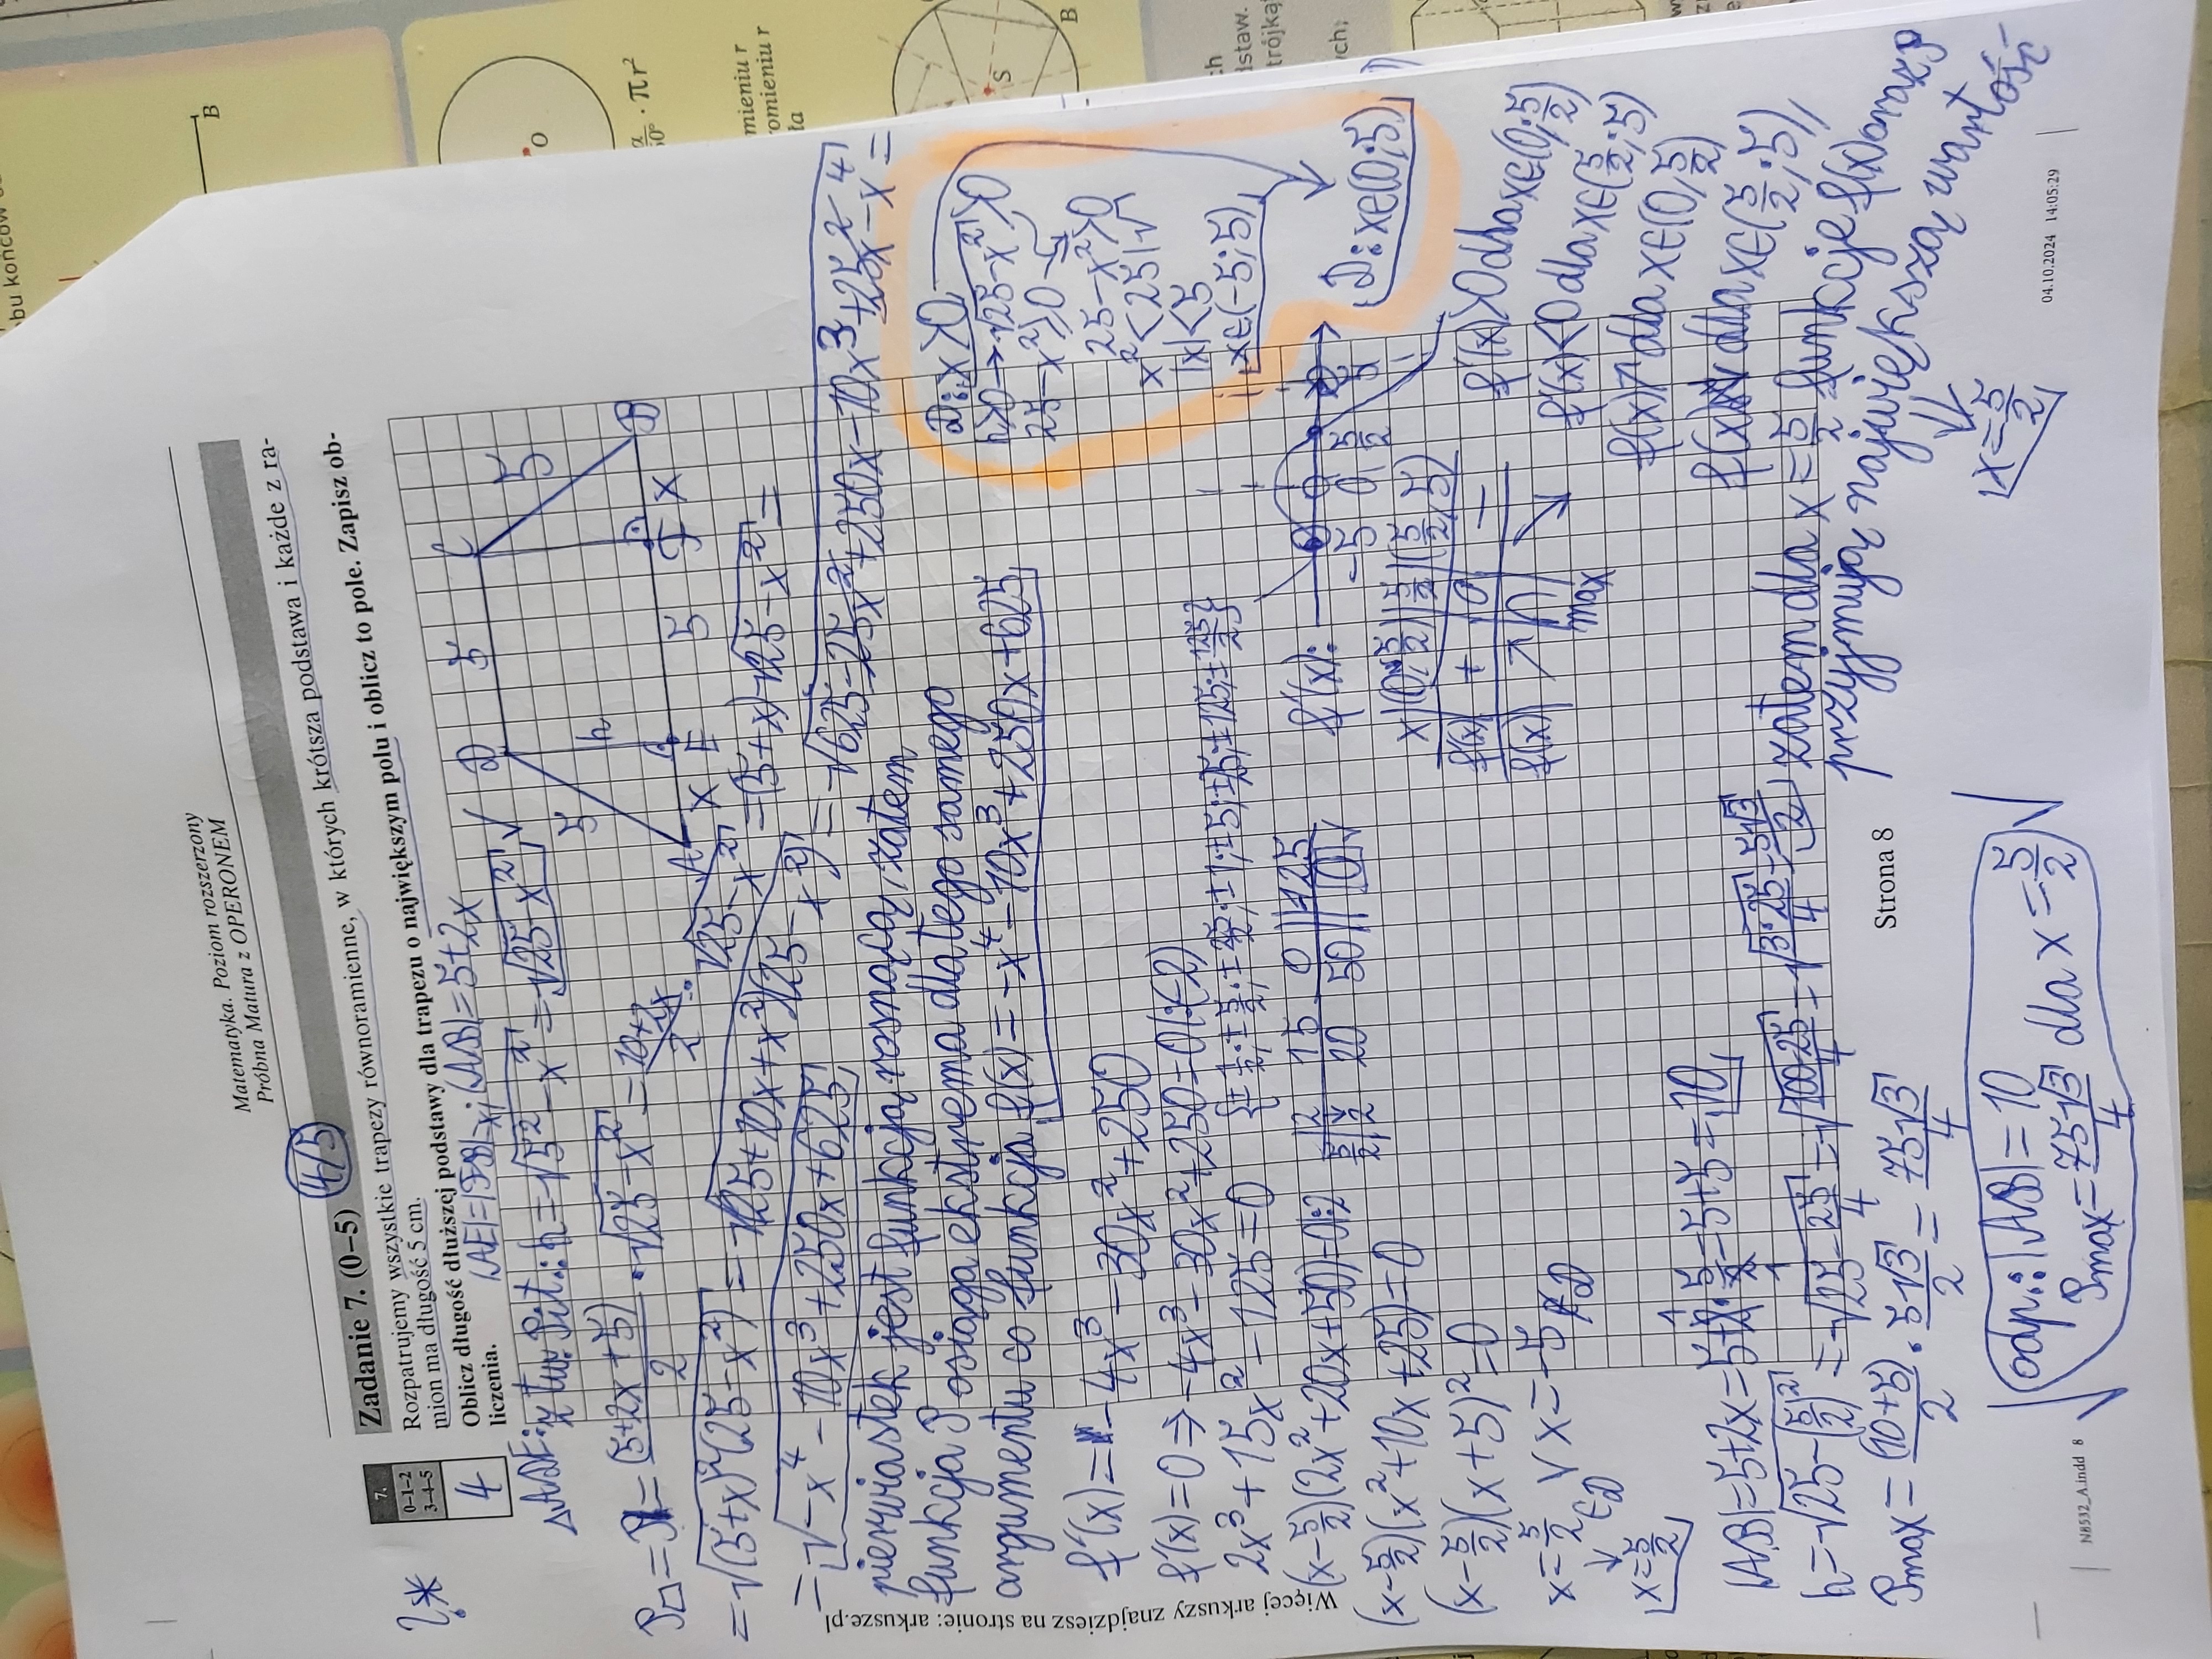 Matematyka. Poziom rozszerzony
Próbna Matura z OPERONEM
4/5
Zadanie 7. (0–5)
Rozpatrujemy wszystkie trapezy równoramienne, w których krótsza podstawa i każde z ra-
mion ma długość 5 cm.
Oblicz długość dłuższej podstawy dla trapezu o największym polu i oblicz to pole. Zapisz ob-
liczenia.
7.
0–1–2
3–4–5
4
?*
|AE|=|FB|=x; |AB|=5+2x
ΔADE: z tw. Pit.: h=√5²-x² = √25-x² √
D 5 C
5 h 5
A x E 5 F x B
P▱ = P = (5+2x+5)/2 · √25-x² = 10+2x/2 · √25-x² = (5+x)√25-x² =
= √(5+x)²(25-x²) = √(25+10x+x²)(25-x²) = √625-25x²+250x-10x³+25x²-x⁴ =
= √-x⁴-10x³+250x+625
pierwiastek jest funkcją rosnącą, zatem
funkcja P osiąga ekstrema dla tego samego
argumentu co funkcja f(x)=-x⁴-10x³+250x+625
D: x>0
h>0 → √25-x²>0
25-x²≥0
25-x²>0
x²<25 |√
|x|<5
x∈(-5;5)
D: x∈(0;5)
f'(x)=-4x³-30x²+250
f'(x)=0 ⇒ -4x³-30x²+250=0 |:(-2)
2x³+15x²-125=0
2 15 0 -125
5/2 2 20 50 0
(x-5/2)(2x²+20x+50)=0 |:2
(x-5/2)(x²+10x+25)=0
(x-5/2)(x+5)²=0
x=5/2 ∈D ∨ x=-5 ∉D
x=5/2
f'(x): -5 0 5/2 5
x (0;5/2) 5/2 (5/2;5)
f'(x) + 0 -
f(x) ↗ max ↘
f'(x)>0 dla x∈(0;5/2)
f'(x)<0 dla x∈(5/2;5)
f(x)↗ dla x∈(0;5/2)
f(x)↘ dla x∈(5/2;5),
zatem dla x=5/2 funkcje f(x) oraz P
przyjmują największą wartość
x=5/2
|AB|=5+2x=5+2·5/2=5+5=10
h=√25-(5/2)² = √25-25/4 = √100-25/4 = √3·25/4 = 5√3/2
Pmax = (10+5)/2 · 5√3/2 = 75√3/4
odp.: |AB|=10
Pmax=75√3/4 dla x=5/2 √
Strona 8
Więcej arkuszy znajdziesz na stronie: arkusze.pl
N8532_A.indd 8
04.10.2024 14:05:29
bu końców
B
O
· πr²
mieniu r
omieniu r
S
B